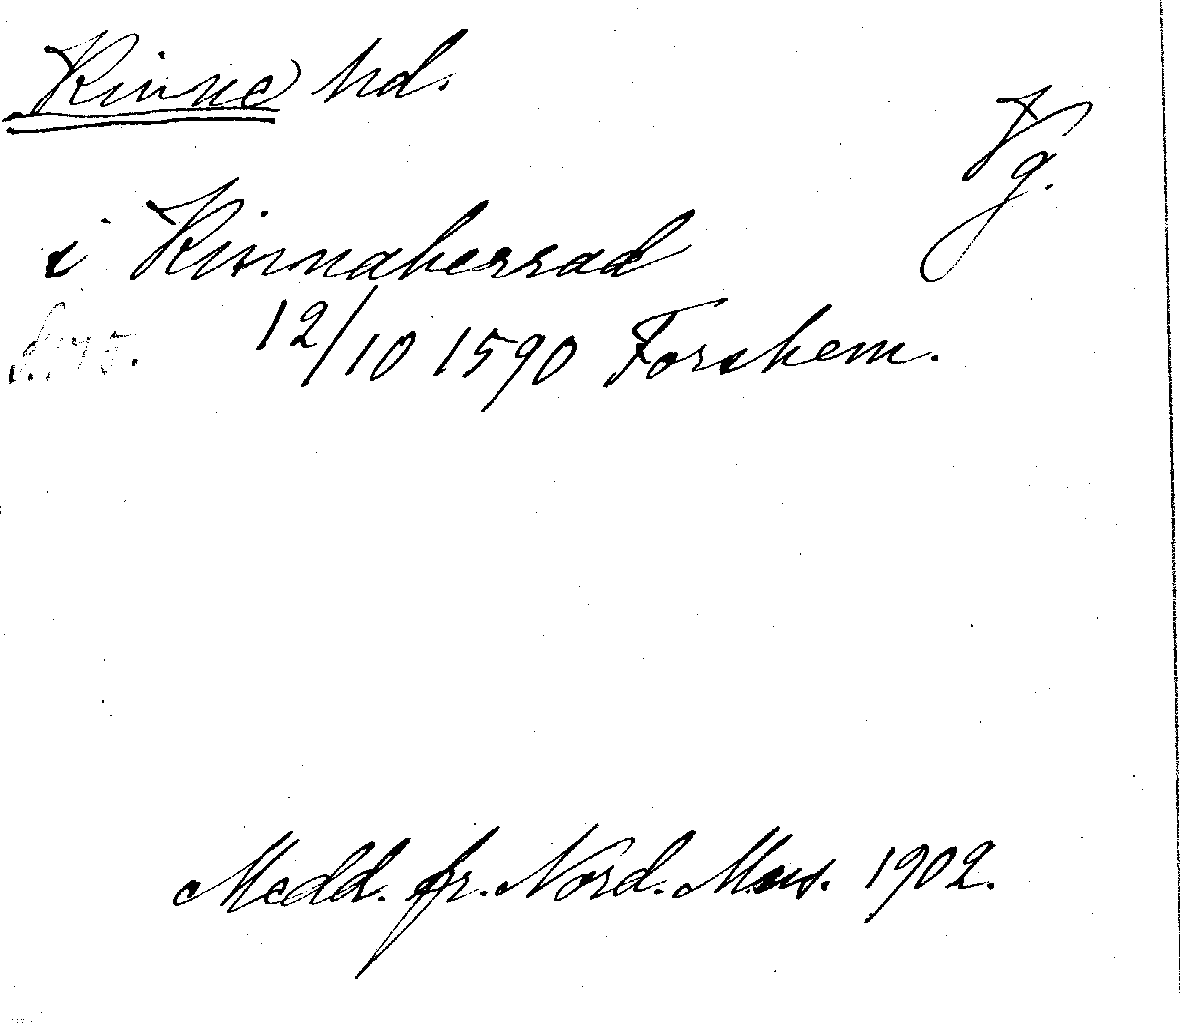 Kinne hd.
Vg.
i Kinnaherrad
s. 175.
12/10 1590 Forshem.
Medd. fr. Nord. Mus. 1902.